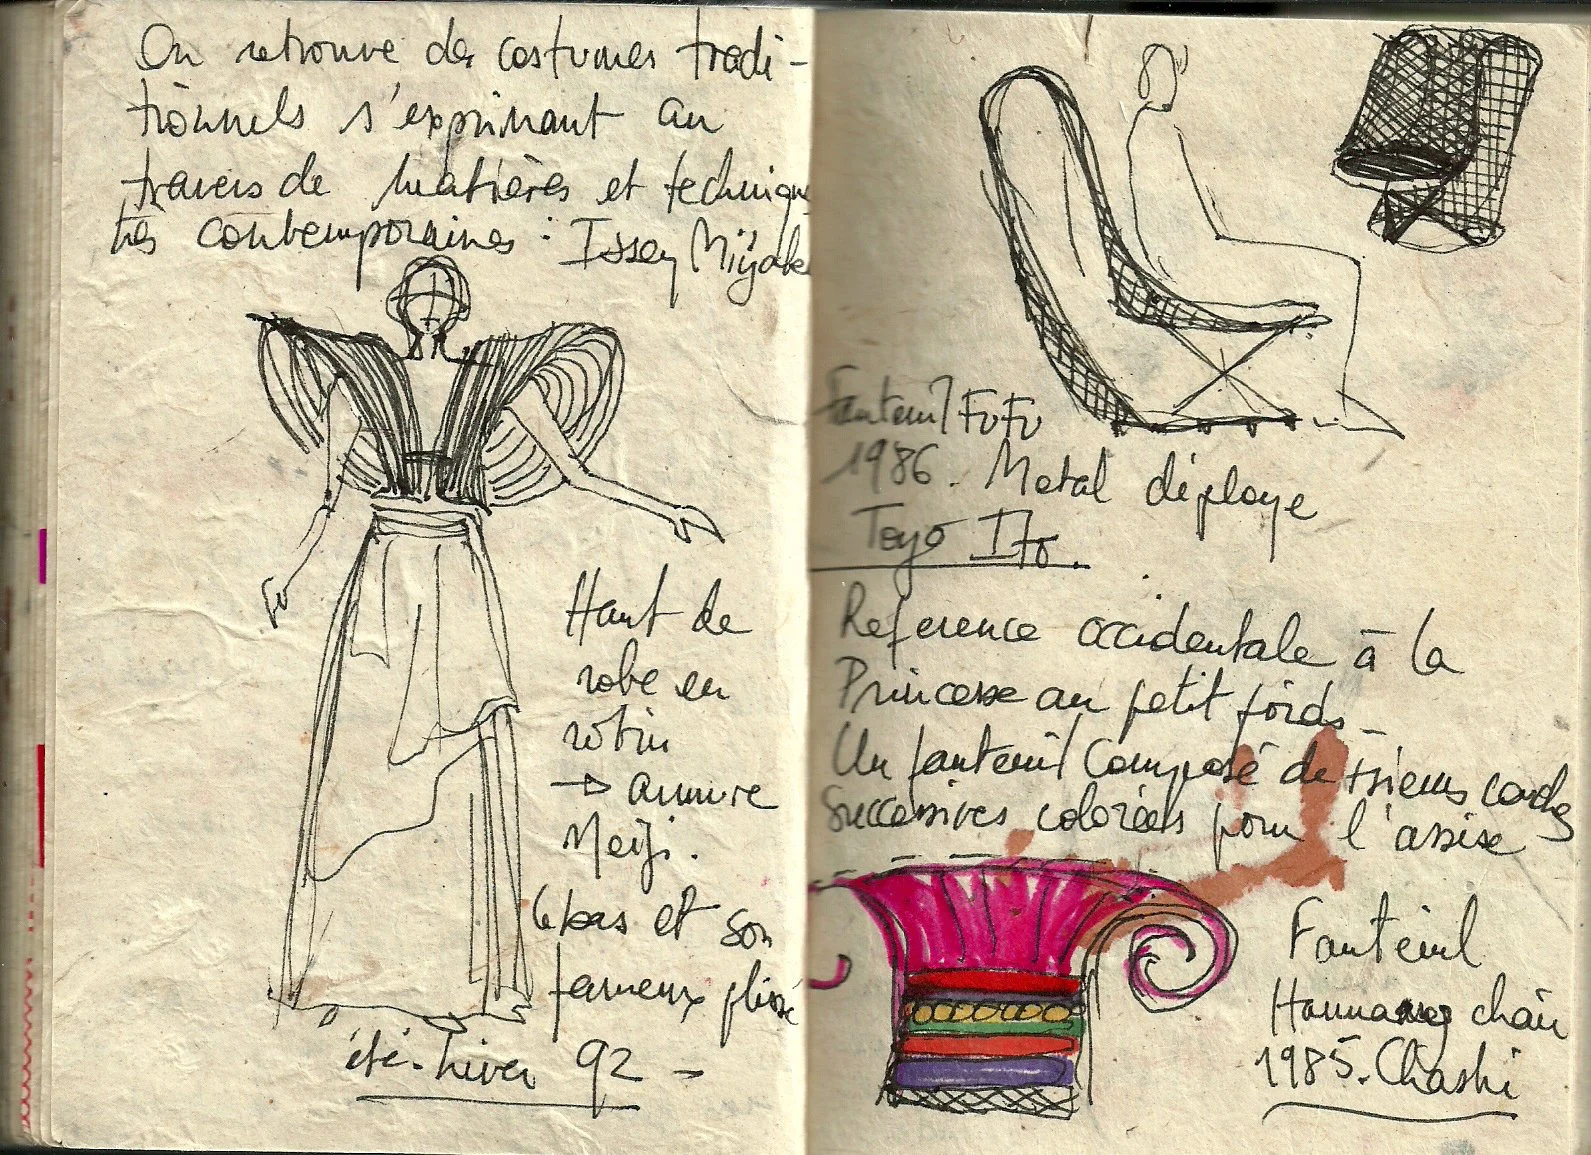 On retrouve des costumes tradi-
tionnels s'exprimant au
travers de matières et technique
très contemporaines : Issey Miyake
Haut de
robe en
rotin
→ armure
Meiji.
le bas et son
fameux plissé
été-hiver 92 -
Fauteuil FuFu
1986. Metal déploye
Toyo Ito.
Reference occidentale à la
Princesse au petit poids -
Un fauteuil composé de couches
successives colorées pour l'assise
Fauteuil
chair
1985.